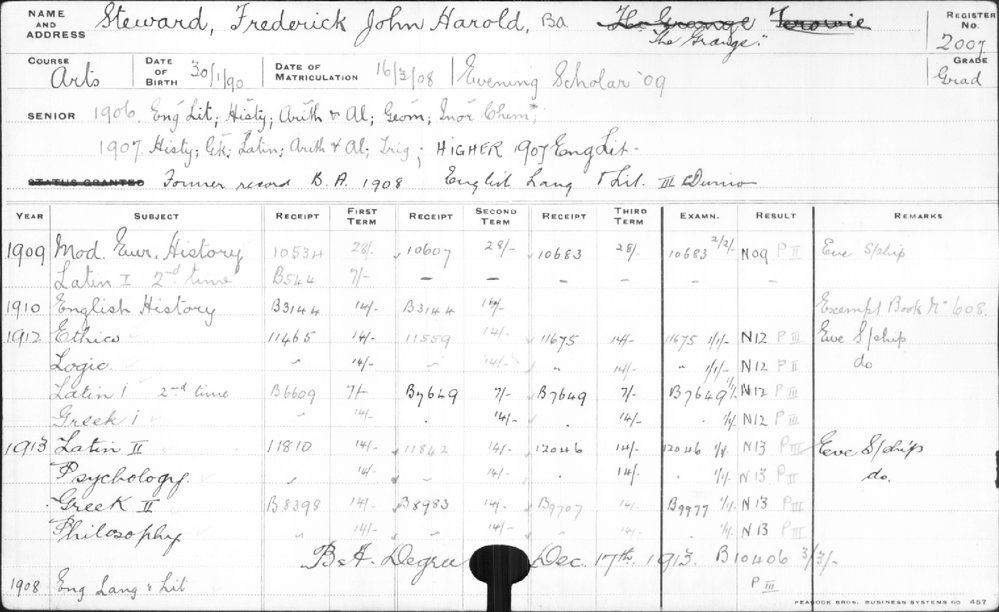 NAME AND ADDRESS Steward, Frederick John Harold, BA The Grange Terowie REGISTER No. 2007
"The Grange."
COURSE Arts DATE OF BIRTH 30/1/90 DATE OF MATRICULATION 16/3/08 Evening Scholar '09 GRADE Grad
SENIOR 1906. Eng Lit; Histy; Arith & Al; Geom; Inor Chem*;
1907. Histy; Gk; Latin; Arith & Al; Trig; HIGHER 1907 Eng Lit.
STATUS GRANTED Former record B.A. 1908 English Lang & Lit. III
YEAR SUBJECT RECEIPT FIRST TERM RECEIPT SECOND TERM RECEIPT THIRD TERM EXAMN. RESULT REMARKS
1909 Mod. Eur. History 10534 28/- 10607 28/- 10683 28/- 10683 2/2/- N09 P II Eve S/ship
Latin I 2nd time B544 7/- – – – – – –
1910 English History B3144 14/- B3144 14/- Exempt Book No 608.
1912 Ethics 11465 14/- 11559 14/- 11675 14/- 11675 1/1/- N12 P III Eve S/ship
Logic " 14/- " 14/- " 14/- " 1/1/- N12 P II do
Latin I 2nd time B6609 7/- B7649 7/- B7649 7/- B7649 1/1/- N12 P III
Greek I " 14/- . 14/- . 14/- . 1/1/- N12 P III
1913 Latin II 11810 14/- 11842 14/- 12046 14/- 12046 1/1/- N13 P III Eve S/ship
Psychology. 14/- . 14/- . 14/- . 1/1/- N13 P III do.
Greek II B8398 14/- B8983 14/- B9707 14/- B9977 1/1/- N13 P III
Philosophy 14/- " 14/- . 14/- . 1/1/- N13 P III
BA Degree Dec. 17th. 1913. B10406 3/3/-
1908 Eng Lang & Lit P III
PEACOCK BROS. BUSINESS SYSTEMS CO 457